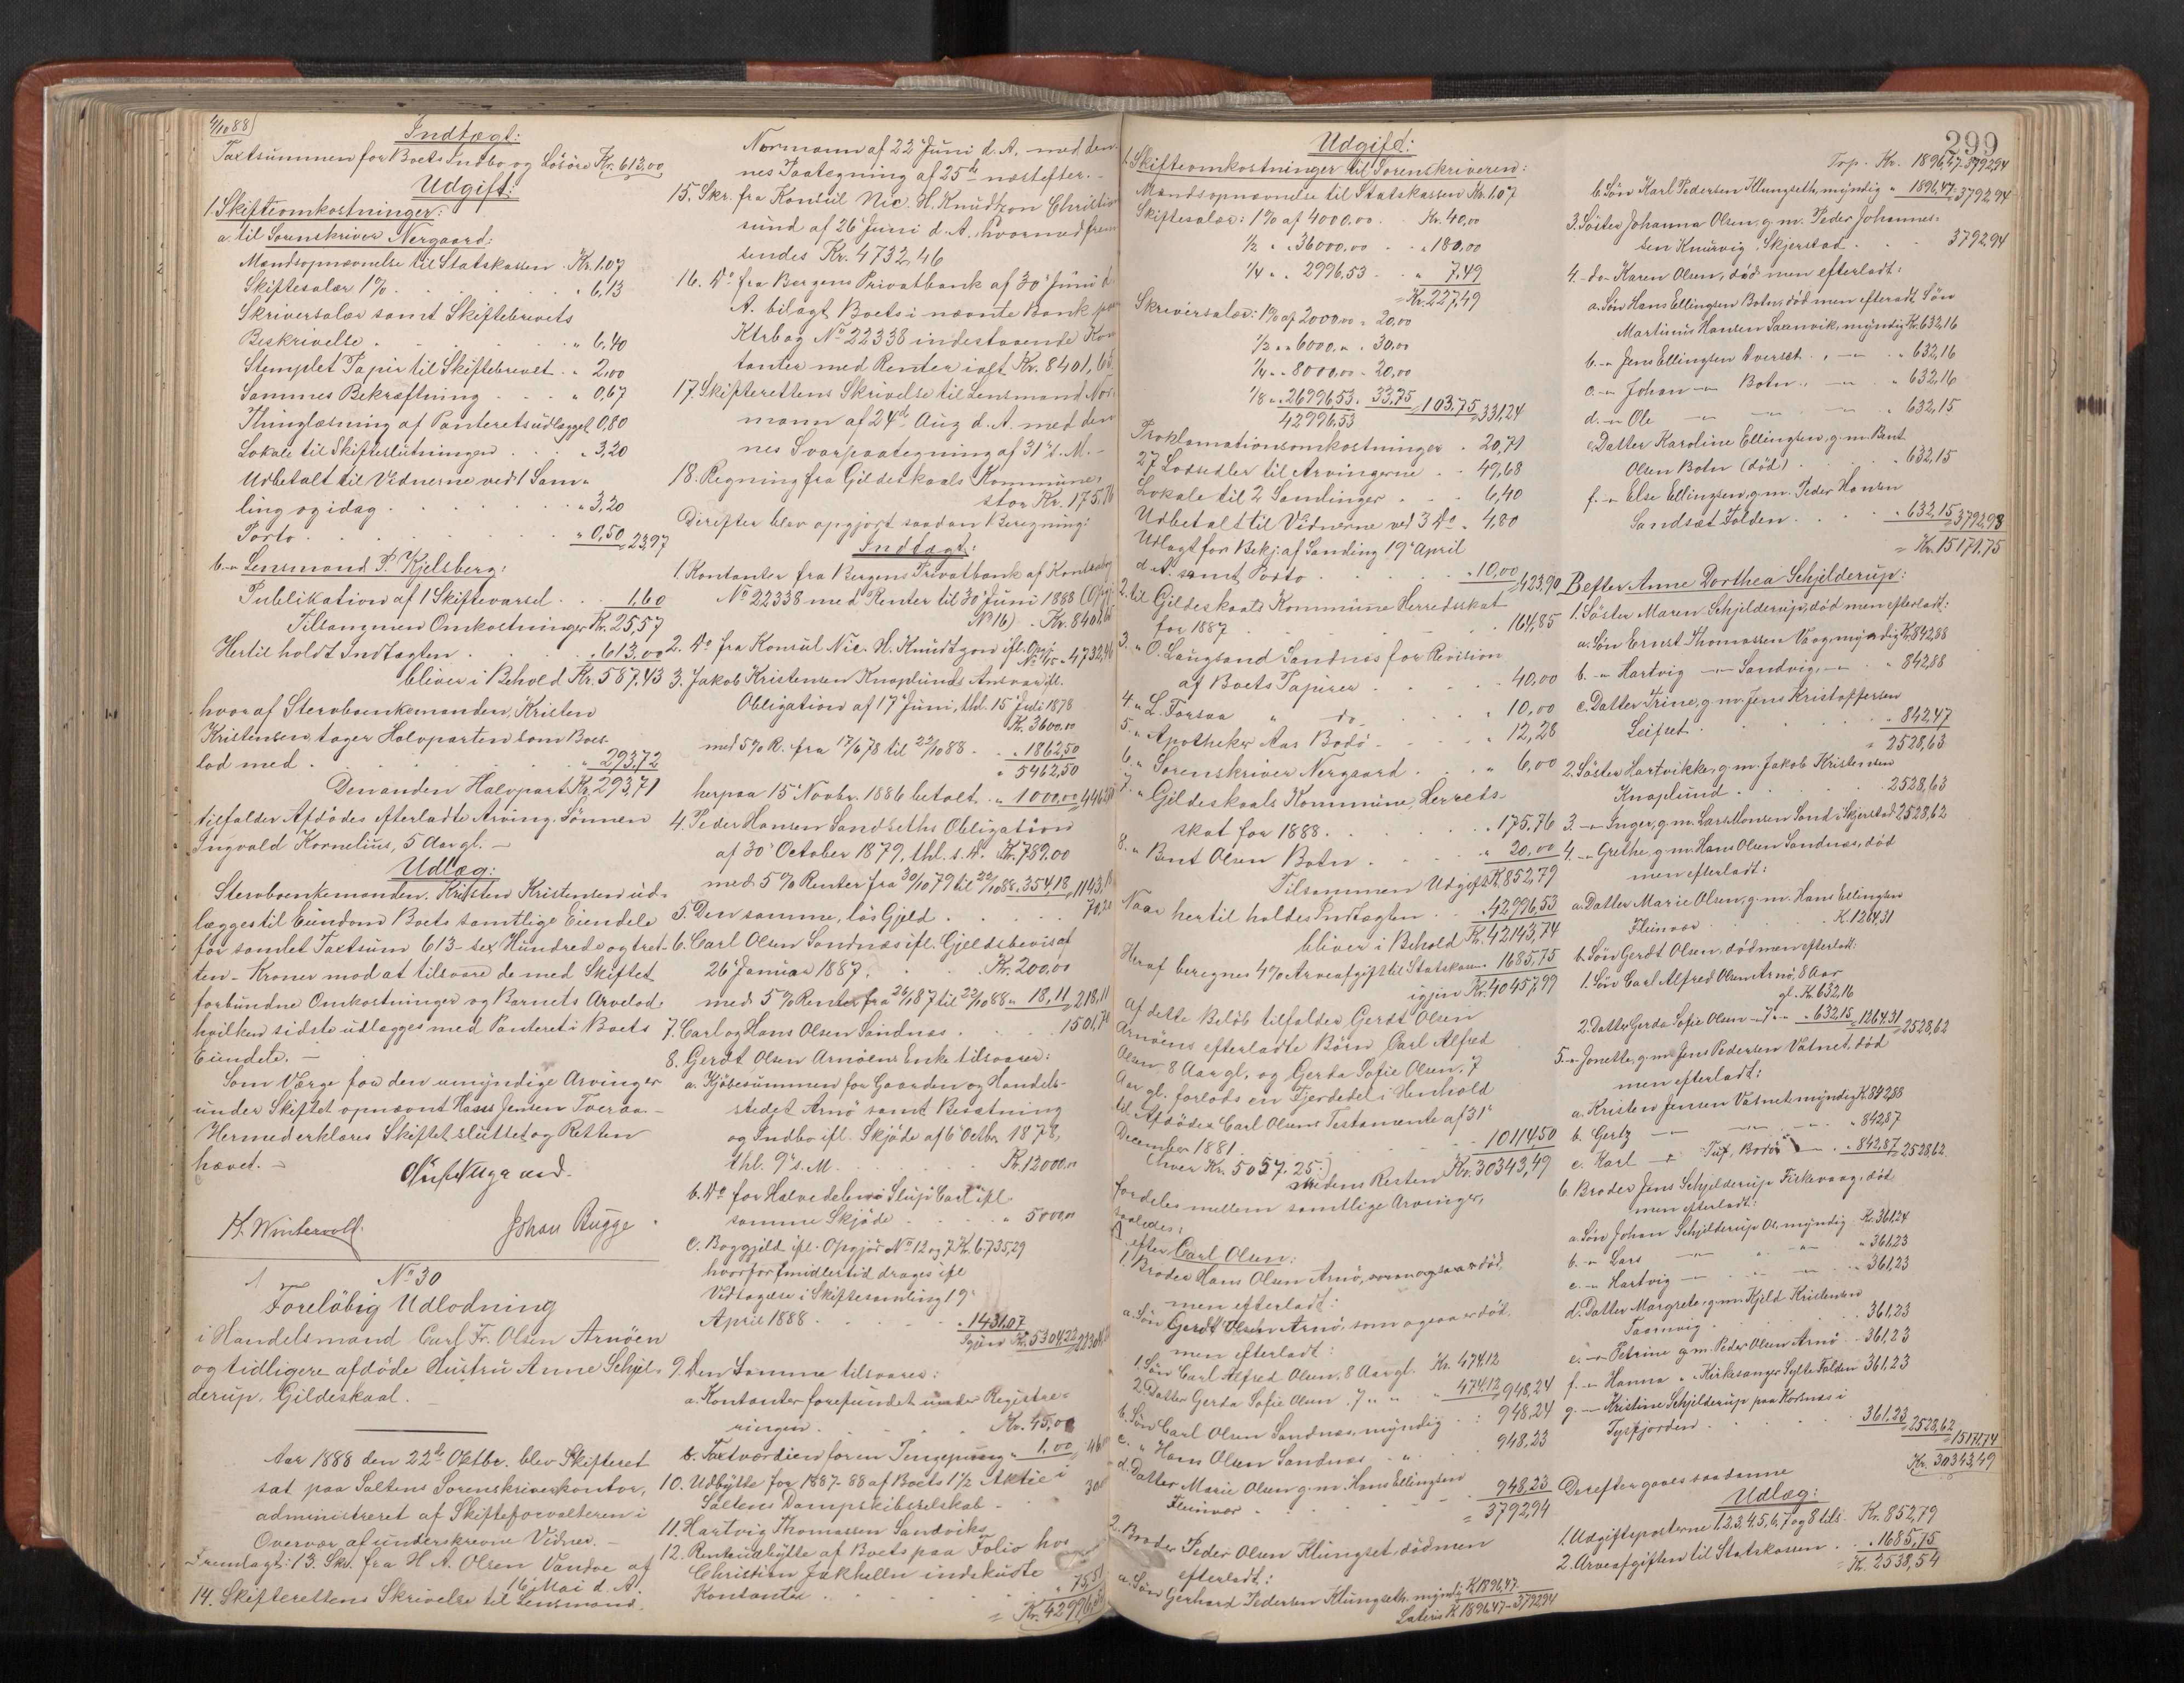 4/10 88
Indtægt:
Taxtsummen for Boets Indbo og Løsøre Kr. 613,00
Udgift:
1. Skifteomkostninger:
a. til Sorenskriver Nergaard:
Mandsopnævnelse til Statskassen Kr. 1.07
Skiftesalær 1% . . . . " 6,13
Skriversalær samt Skiftebrevets
Beskrivelse . . . . " 6,40
Stemplet Papir til Skiftebrevet . " 2,00
Sammes Bekræftning . . . " 0,67
Thinglæsning af Panteretsudlægget 0,80
Lokale til Skifteslutningen . . " 3,20
Udbetalt til Vidnerne ved 1 Sam-
ling og idag . . . . " 3,20
Porto . . . . " 0,50 = 23,97
b. " Lensmand P. Kjelsberg:
Publikation af 1 Skiftevarsel . . 1,60
Tilsammen Omkostninger Kr. 25,57
Hertil holdt Indtægten . . " 613,00
bliver i Behold Kr. 587,43
hvoraf Stervboenkemanden, Kristen
Kristensen, tager Halvparten som Boes-
lod med . . . . " 293,72
Den anden Halvpart Kr. 293,71
tilfalder Afdødes efterladte Arving, Sønnen
Ingvald Kornelius, 5 Aar gl. —
Udlæg:
Stervboenkemanden Kristen Kristensen ud-
lægges til Eiendom Boets samtlige Eiendele
for samlet Taxtsum 613 - sex Hundrede og tret-
ten - Kroner mod at tilsvare de med Skiftet
forbundne Omkostninger og Barnets Arvelod,
hvilken sidste udlægges med Panteret i Boets
Eiendele. —
Som Værge for den umyndige Arving er
under Skiftet opnævnt Hans Jensen Tveraa —
Hermed erklæres Skiftet sluttet og Retten
hævet. —
K. Wintervold. Johan Bugge
No 30
Foreløbig Udlodning
i Handelsmand Carl Fr. Olsen Arnøen
og tidligere afdøde Hustru Anne Schjel-
derup, Gildeskaal.
Aar 1888 den 22de Oktbr. blev Skifteret
sat paa Saltens Sorenskriverkontor,
administreret af Skifteforvalteren i
Overvær af underskrevne Vidner. —
Fremlagt: 13. Skr. fra H. A. Olsen Vandve af
16 Mai d. A.
14. Skifterettens Skrivelse til Lensmand
Normann af 22 Juni d. A. med den-
nes Paategning af 25de næstefter. —
15. Skr. fra Konsul Nic. H. Knudtzon Christian
sund af 26 Juni d. A. hvormed frem
sendes Kr. 4732,46
16. Do fra Bergens Privatbank af 30 Juni d.
A. bilagt Boets i nævnte Bank paa
Ktrbog No 22338 indestaaende Kon
tanter med Renter ialt Kr. 8401,65
17. Skifterettens Skrivelse til Lensmand Nor-
mann af 24de Aug d. A. med den
nes Svarpaategning af 31 s. M. —
18. Regning fra Gildeskaals Kommune,
stor Kr. 175,76
Derefter blev opgjort saadan Beregning:
Indtægt:
1. Kontanter fra Bergens Privatbank af Kontrabog
No 22338 med Renter til 30 Juni 1888 (Opgj.
No 16) . Kr. 8401,65
2. Do fra Konsul Nic. H. Knudtzon ifl. Opgj.
No 15 " 4732,46
3. Jakob Kristensen Knaplunds Ansvar ifl.
Obligation af 17 Juni, thl. 15 Juli 1878
Kr. 3600.00
med 5% R. fra 17/6 78 til 22/10 88 . " 1862,50
" 5462,50
herpaa 15 Novbr. 1886 betalt . " 1000,00 = 4462,50
4. Peder Hansen Sandseths Obligation
af 30 October 1879, thl. s. D. Kr. 789.00
med 5% Renter fra 30/10 79 til 22/10 88 " 354,18 = 1143,18
5. Den samme, løs Gjeld . . .
6. Carl Olsen Sandnæs ifl. Gjeldsbevis af
26 Januar 1887 . . . Kr. 200,00
med 5% Renter fra 26/1 87 til 22/10 88 " 18,11 = 218,11
7. Carl og Hans Olsen Sandnæs . . .
8. Gerdt Olsen Arnøens Enke tilsvarer:
a. Kjøbesummen for Gaarden og Handels-
stedet Arnø samt Besætning
og Indbo ifl. Skjøde af 6 Octbr. 1878,
thl. 9 s. M. . . . Kr. 12000.00
b. Do for Halvedelen i Slup "Carl" ifl.
samme Skjøde . . . " 5000,00
c. Boggjeld ifl. Opgjør No 12 og 7 Kr. 6735,29
hvorfor imidlertid drages ifl
Vedtagelse i Skiftesamling 19
April 1888 . . . " 1431.07
Igjen Kr. 5304.22
9. Den Samme tilsvarer:
a. Kontanter forefundet under Registre-
ringen . . . Kr. 45,00
b. Taxtværdien for en Pengepung " 1,00
10. Udbytte for 1887-88 af Boets 1 1/2 Aktie i
Saltens Dampskibsselskab . .
11. Hartvig Thomassen Sandvik
12. Renteudbytte af Boets paa Folio hos
Christian Jakhelln indskudte
Kontanter . . . .
= Kr. 42996,53
Udgift:
1. Skifteomkostninger til Sorenskriveren:
Mandsopnævnelse til Statskassen Kr. 1.07
Skiftesalær: 1% af 4000.00 . Kr. 40,00
1/2 " " 36000,00 . " 180,00
1/4 " " 2996,53 . " 7,49
= Kr. 227,49
Skriversalær: 1% af 2000.00 = 20,00
1/2 " " 6000,00 . 30,00
1/4 " " 8000,00 . 20,00
1/8 " " 26996.53 . 33,75 = 103,75 = 331,24
42996,53
Proklamationsomkostninger . " 20,71
27 Lodsedler til Arvingerne . " 49,68
Lokale til 2 Samlinger . . " 6,40
Udbetalt til Vidnerne ved 3 Do . 4,80
Udlagt for Bekj: af Samling 19 April
d. A. samt Porto . . . " 10,00 = 423,90
2. til Gildeskaals Kommune Herredsskat
for 1887 . . . " 164,85
3. " O. Laugsand Sandnæs for Revision
af Boets Papirer . . . 40,00
4. " L. Forsaa " do . . " 10,00
5. " Apotheker Aas Bodø . . " 12,28
6. " Sorenskriver Nergaard . . " 6,00
7. " Gildeskaals Kommune, Herreds-
skat for 1888 . . . " 175.76
8. " Bent Olsen Botn . . . " 20,00
Tilsammen Udgift Kr. 852,79
Naar hertil holdes Indtægten . " 42996,53
bliver i Behold Kr. 42143,74
Heraf beregnes 4% Arveafgift til Statskassen " 1685,75
igjen Kr. 40457,99
Af dette Beløb tilfalder Gerdt Olsen
Arnøens efterladte Børn Carl Alfred
Olsen 8 Aar gl. og Gerda Sofie Olsen, 7
Aar gl. forlods en Fjerdedel i Henhold
til Afdøde Carl Olsens Testamente af 31
December 1881 . . . 10114,50
(hver Kr. 5057.25:)
medens Resten Kr. 30343,49
fordeles mellem samtlige Arvinger,
saaledes:
A efter Carl Olsen:
1. Broder Hans Olsen Arnø, som ogsaa er død,
men efterladt:
a. Søn Gerdt Olsen Arnø, som ogsaa er død,
men efterladt:
1. Søn Carl Alfred Olsen, 8 Aar gl. Kr. 474.12
2. Datter Gerda Sofie Olsen, 7 " " " 474.12 = 948,24
b. Søn Carl Olsen Sandnæs, myndig . : 948,24
c. " Hans Olsen Sandnæs " . 948,23
d. Datter Marie Olsen g. m. Hans Ellingsen
Fleinvær . . . 948,23
= 3792,94
2. Broder Peder Olsen Klungset, død men
efterladt:
a. Søn Gerhard Pedersen Klungseth, myndig K 1896,47
Lateris K. 1896.47 - 3792.94
299
Trp. Kr. 1896,47 - 3792,94
b. Søn Karl Pedersen Klungseth, myndig " 1896,47 = 3792,94
3. Søster Johanna Olsen, g. m. Peder Johannes-
sen Knurvig, Skjerstad . . 3792.94
4. -do- Karen Olsen, død men efterladt:
a. Søn Hans Ellingsen Botn, død men efterladt Søn
Martinus Hansen Saanvik, myndig Kr. 632,16
b. -"- Jens Ellingsen Överset . -"- . " 632,16
c. -"- Johan -"- Botn . -"- " 632,16
d. -"- Ole -"- -"- -"- " 632,15
e. Datter Karoline Ellingsen, g. m. Bent
Olsen Botn (død) . . . " 632,15
f. -"- Else Ellingsen, g. m. Peder Hansen
Sandsæt Folden . . . " 632,15 = 3792,93
= Kr. 15171.75
B efter Anne Dorthea Schjelderup:
1. Søster Maren Schjelderup, død men efterladt:
a. Søn Ernst Thomassen Vaag, myndig Kr. 842,88
b. -"- Hartvig -"- Sandvig, -"- . " 842,88
c. Datter Trine, g. m. Jens Kristoffersen
Leifset . . . " 842,47
" 2528,63
2. Søster Hartvikke, g. m. Jakob Kristensen
Knaplund . . . 2528,63
3. -"- Inger, g. m. Lars Monsen Sand i Skjerstad 2528,62
4. -"- Grethe, g. m. Hans Olsen Sandnæs, død
men efterladt:
a. Datter Marie Olsen, g. m. Hans Ellingsen
Fleinvær . . . K. 1264,31
b. Søn Gerdt Olsen, død men efterladt:
1. Søn Carl Alfred Olsen Arnø, 8 Aar
gl. Kr. 632,16
2. Datter Gerda Sofie Olsen 7 " " " 632,15 = 1264,31 = 2528,62
5. -"- Jonette, g. m. Jens Pedersen Vatnet, død
men efterladt:
a. Kristen Jensen Vatnet, myndig K. 842,88
b. Gertz -"- -"- -"- " 842,87
c. Karl -"- Tuf, Bodø -"- . " 842,87 = 2528,62
6. Broder Jens Schjelderup Firkevaag, død
men efterladt:
a. Søn Johan Schjelderup Os. myndig . Kr. 361,24
b. -"- Lars -"- " -"- " 361,23
c. -"- Hartvig -"- " -"- " 361,23
d. Datter Margrete, g. m. Kjeld Kristensen
Taanvig . . . 361,23
e. -"- Petrine g. m. Peder Olsen Arnø . 361,23
f. -"- Hanna " Kirkesanger Sylte Folden 361,23
g. -"- Kristine Schjelderup paa Korsnæs i
Tysfjorden . . . 361,23 = 2528,62
= 15171.74
Kr. 30343,49
Derefter gaves saadanne
Udlæg:
1. Udgiftsposterne 1, 2, 3, 4, 5, 6, 7 og 8 tils. Kr. 852,79
2. Arveafgiften til Statskassen . . " 1685,75
= Kr. 2538,54